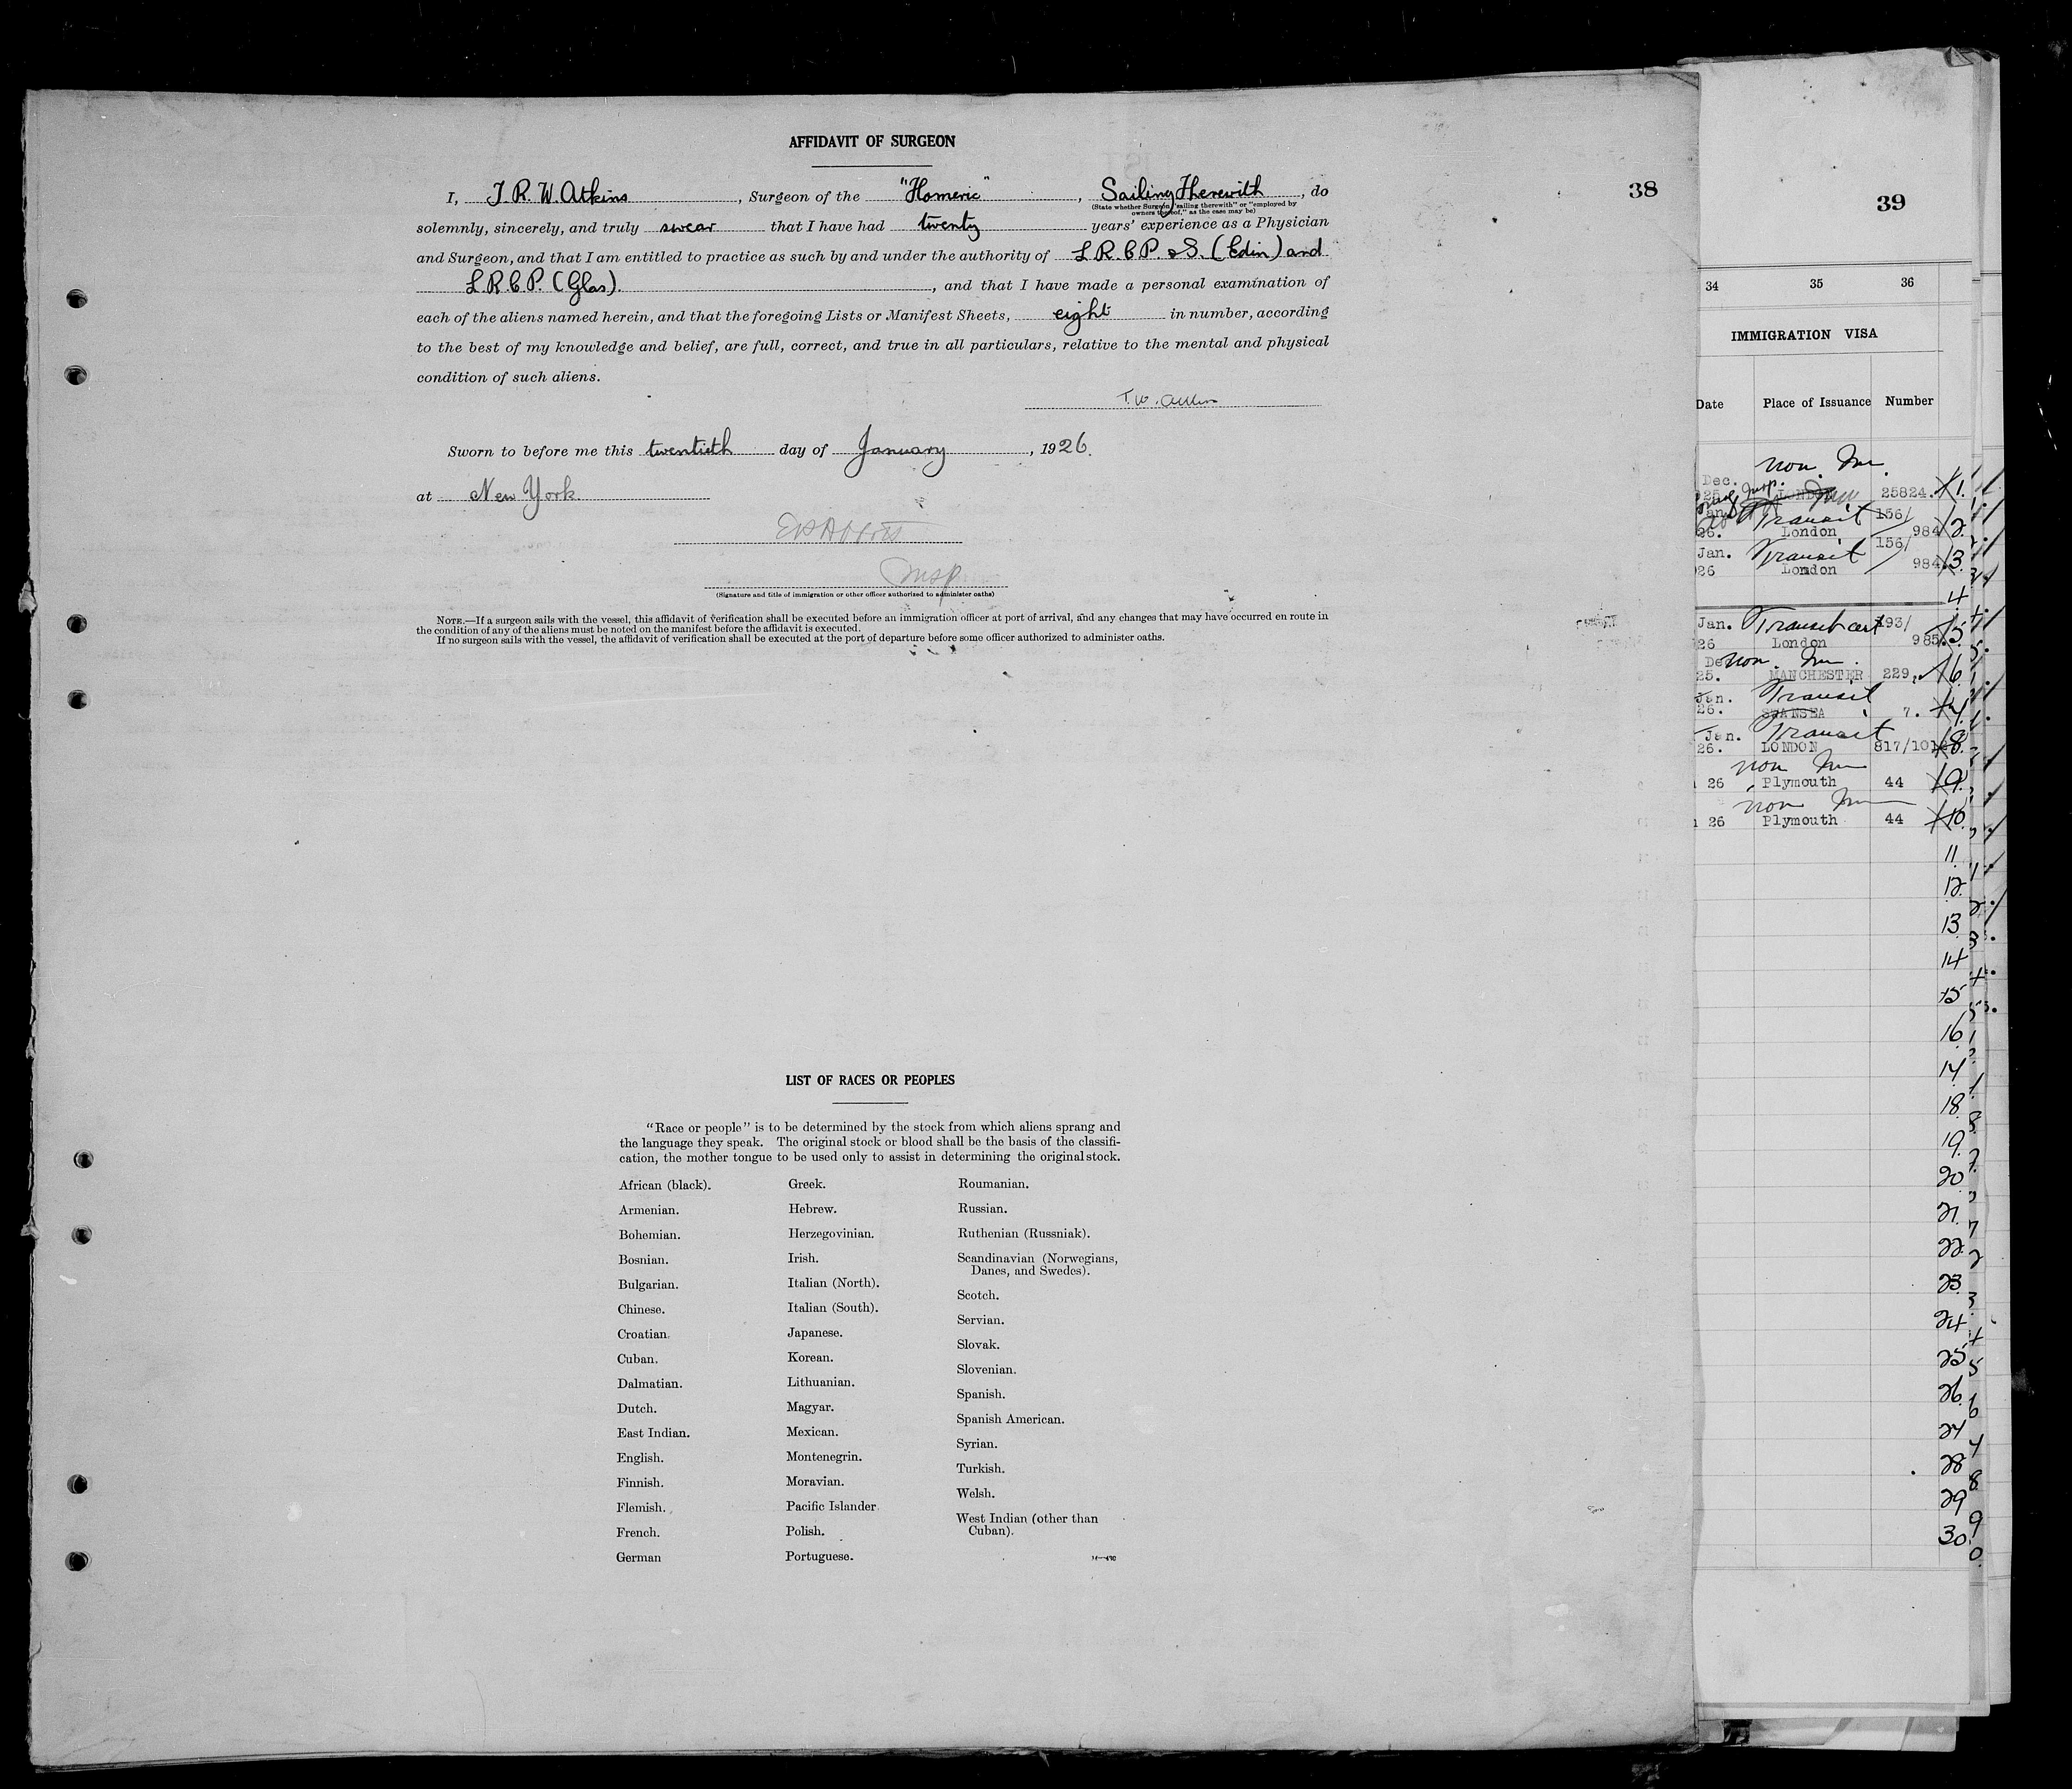 AFFIDAVIT OF SURGEON
38
I, T. R. W. Atkins, Surgeon of the "Homeric", Sailing Therewith, do
(State whether Surgeon "sailing therewith" or "employed by
owners thereof," as the case may be)
solemnly, sincerely, and truly swear that I have had twenty years' experience as a Physician
and Surgeon, and that I am entitled to practice as such by and under the authority of L.R.C.P. & S. (Edin) and
L.R.C.P. (Glas)., and that I have made a personal examination of
each of the aliens named herein, and that the foregoing Lists or Manifest Sheets, eight in number, according
to the best of my knowledge and belief, are full, correct, and true in all particulars, relative to the mental and physical
condition of such aliens.
Sworn to before me this twentieth day of January, 1926.
at New York.
Insp
(Signature and title of immigration or other officer authorized to administer oaths)
NOTE.—If a surgeon sails with the vessel, this affidavit of verification shall be executed before an immigration officer at port of arrival, and any changes that may have occurred en route in
the condition of any of the aliens must be noted on the manifest before the affidavit is executed.
If no surgeon sails with the vessel, the affidavit of verification shall be executed at the port of departure before some officer authorized to administer oaths.
LIST OF RACES OR PEOPLES
"Race or people" is to be determined by the stock from which aliens sprang and
the language they speak. The original stock or blood shall be the basis of the classifi-
cation, the mother tongue to be used only to assist in determining the original stock.
African (black).
Armenian.
Bohemian.
Bosnian.
Bulgarian.
Chinese.
Croatian.
Cuban.
Dalmatian.
Dutch.
East Indian.
English.
Finnish.
Flemish.
French.
German
Greek.
Hebrew.
Herzegovinian.
Irish.
Italian (North).
Italian (South).
Japanese.
Korean.
Lithuanian.
Magyar.
Mexican.
Montenegrin.
Moravian.
Pacific Islander
Polish.
Portuguese.
Roumanian.
Russian.
Ruthenian (Russniak).
Scandinavian (Norwegians,
Danes, and Swedes).
Scotch.
Servian.
Slovak.
Slovenian.
Spanish.
Spanish American.
Syrian.
Turkish.
Welsh.
West Indian (other than
Cuban).
39
34 35 36
IMMIGRATION VISA
Date Place of Issuance Number
non Im.
Dec.
25 LONDON 25824. 1.
Transit 156/
26. London 984 2.
Jan. Transit 156/
26 London 984 3.
4.
Jan. Transit cert 193/
26 London 985. 5.
non. Im.
25. MANCHESTER 229. 6.
Jan. Transit
26. SWANSEA 7. 7.
Jan. Transit
26. LONDON 817/10 8.
non Im
26 Plymouth 44 9.
non Im
26 Plymouth 44 10.
11.
12.
13
14
15
16
17
18.
19.
20
21.
22.
23.
24
25
26.
27
28
29
30.